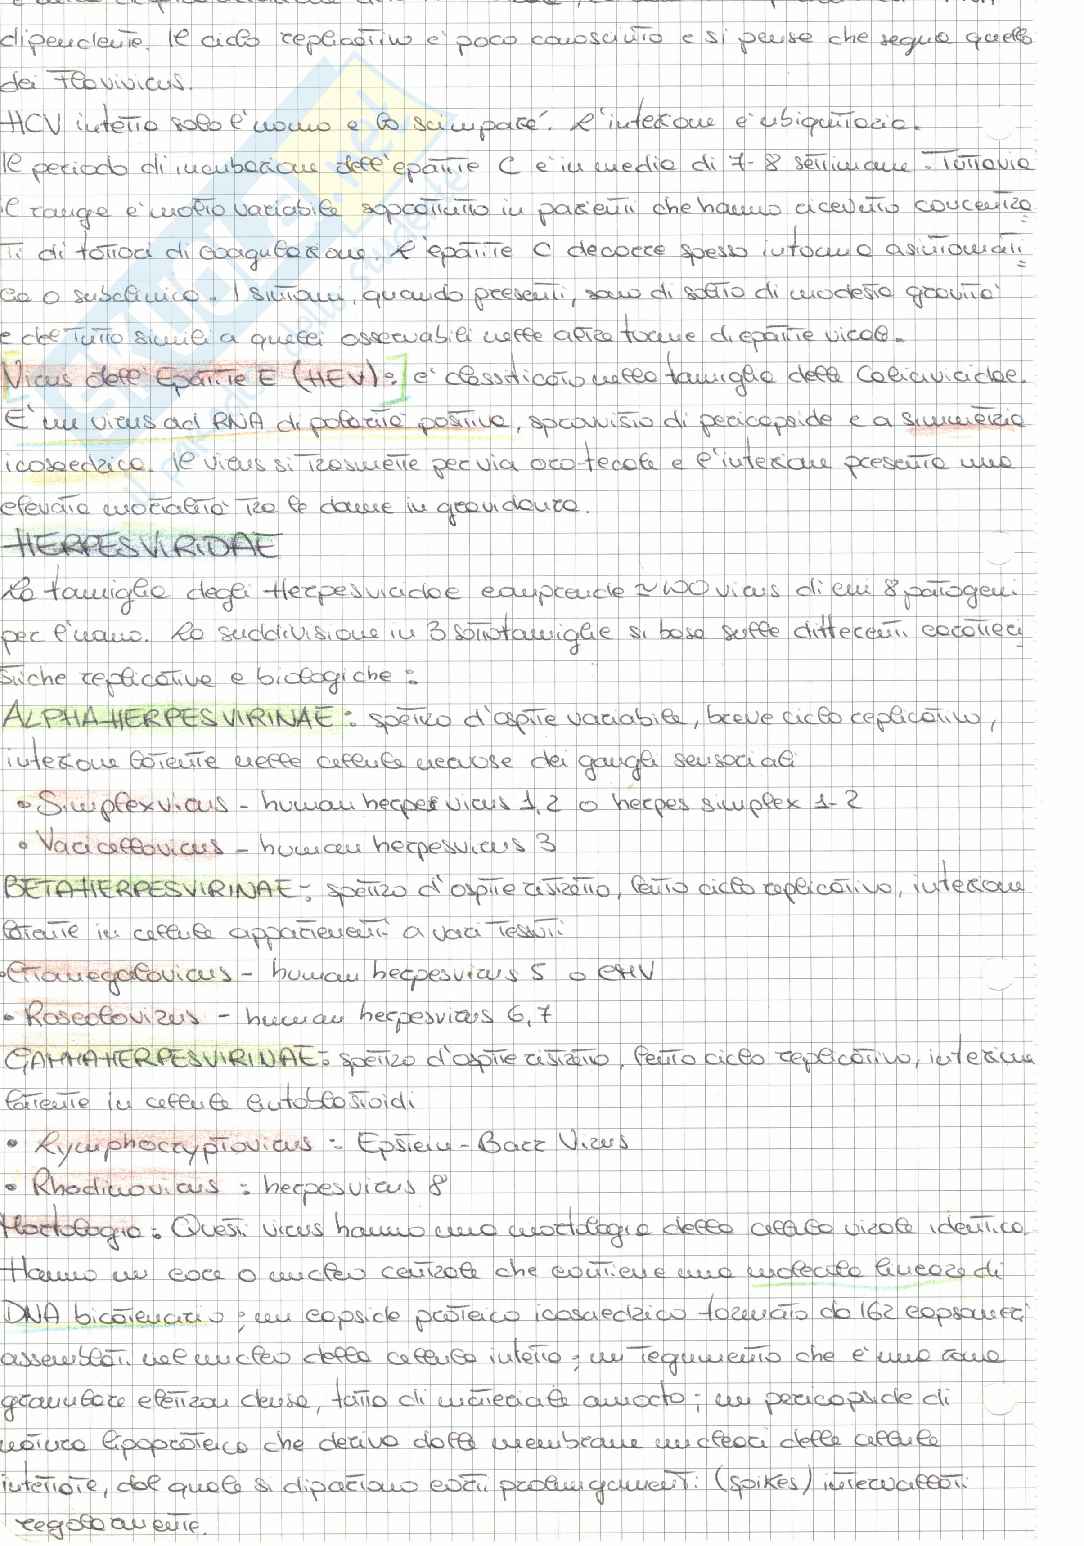 dipendente. Il ciclo replicativo e' poco conosciuto e si pensa che segua quello
dei Flavivirus.
HCV infetta solo l'uomo e lo scimpanzé. L'infezione e' ubiquitaria.
Il periodo di incubazione dell'epatite C e' in media di 7-8 settimane. Tuttavia
il range e' molto variabile soprattutto in pazienti che hanno ricevuto concentra=
ti di fattori di coagulazione. L'epatite C decorre spesso in forma asintomati=
ca o subclinica. I sintomi, quando presenti, sono di solito di modesta gravita'
e del tutto simili a quelli osservabili nelle altre forme di epatite virale.
Virus dell'Epatite E (HEV): e' classificato nella famiglia delle Caliciviridae.
E' un virus ad RNA di polarità positiva, sprovvisto di pericapside e a simmetria
icosaedrica. Il virus si trasmette per via oro-fecale e l'infezione presenta una
elevata mortalità tra le donne in gravidanza.
HERPESVIRIDAE
La famiglia degli Herpesviridae comprende ~100 virus di cui 8 patogeni
per l'uomo. La suddivisione in 3 sottofamiglie si basa sulle differenti caratteri
stiche replicative e biologiche:
ALPHAHERPESVIRINAE: spettro d'ospite variabile, breve ciclo replicativo,
infezione latente nelle cellule nervose dei gangli sensoriali
• Simplexvirus - human herpes virus 1,2 o herpes simplex 1-2
• Varicellovirus - human herpesvirus 3
BETAHERPESVIRINAE: spettro d'ospite ristretto, lento ciclo replicativo, infezione
latente in cellule appartenenti a vari tessuti
• Citomegalovirus - human herpesvirus 5 o CMV
• Roseolovirus - human herpesvirus 6,7
GAMMAHERPESVIRINAE: spettro d'ospite ristretto, lento ciclo replicativo, infezione
latente in cellule linfoblastoidi
• Lymphocryptovirus: Epstein-Barr Virus
• Rhadinovirus: herpesvirus 8
Morfologia: Questi virus hanno una morfologia della cellula virale identica.
Hanno un core o nucleo centrale che contiene una molecola lineare di
DNA bicatenario; un capside proteico icosaedrico formato da 162 capsomeri
assemblati nel nucleo della cellula infetta; un tegumento che e' una zona
granulare elettron densa, fatto di materiale amorfo; un pericapside di
natura lipoproteica che deriva dalla membrana nucleari della cellula
infettate, dal quale si dipartono corti prolungamenti (spikes) intervallati
regolarmente.